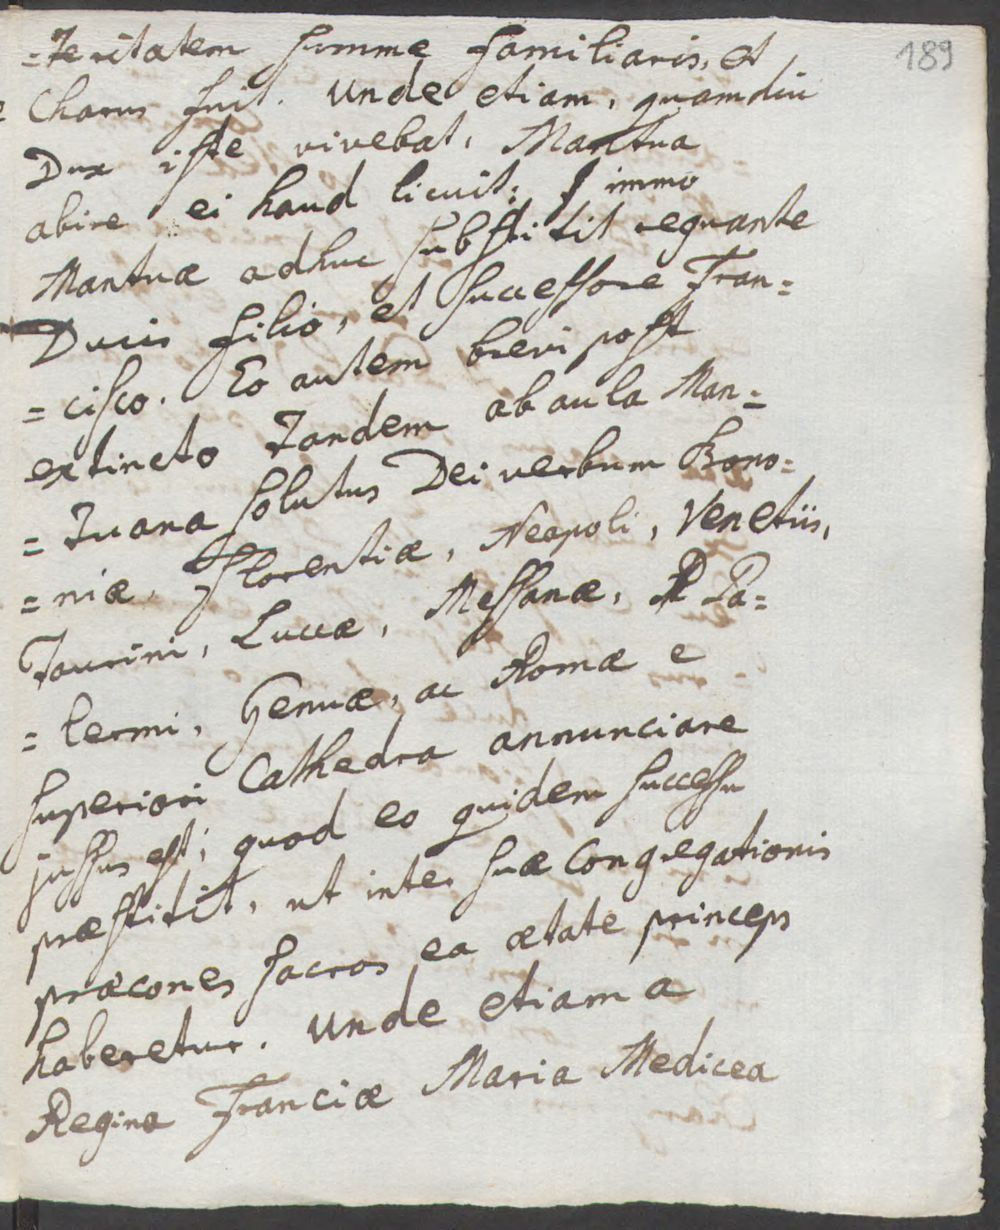 189
=teritatem summe familiaris, et
Charus fuit. Unde etiam, quamdiu
Dux iste vivebat, Mantua
abire ei haud licuit; immo
Mantuæ adhuc substitit regnante
Ducis filio, et successore Fran=
=cisco. Eo autem brevi post
extincto tandem ab aula Man=
=tuana solutus Dei verbum Bono=
=niæ, Florentiæ, Neapoli, Venetiis,
Taurini, Luccæ, Messanæ, Pa=
=lermi, Genuæ, ac Romæ e
superiori Cathedra annunciare
jussus est; quod eo quidem successu
præstitit, ut inter suæ Congregationis
præcones sacros ea ætate princeps
haberetur. Unde etiam a
Regina Franciæ Maria Medicea